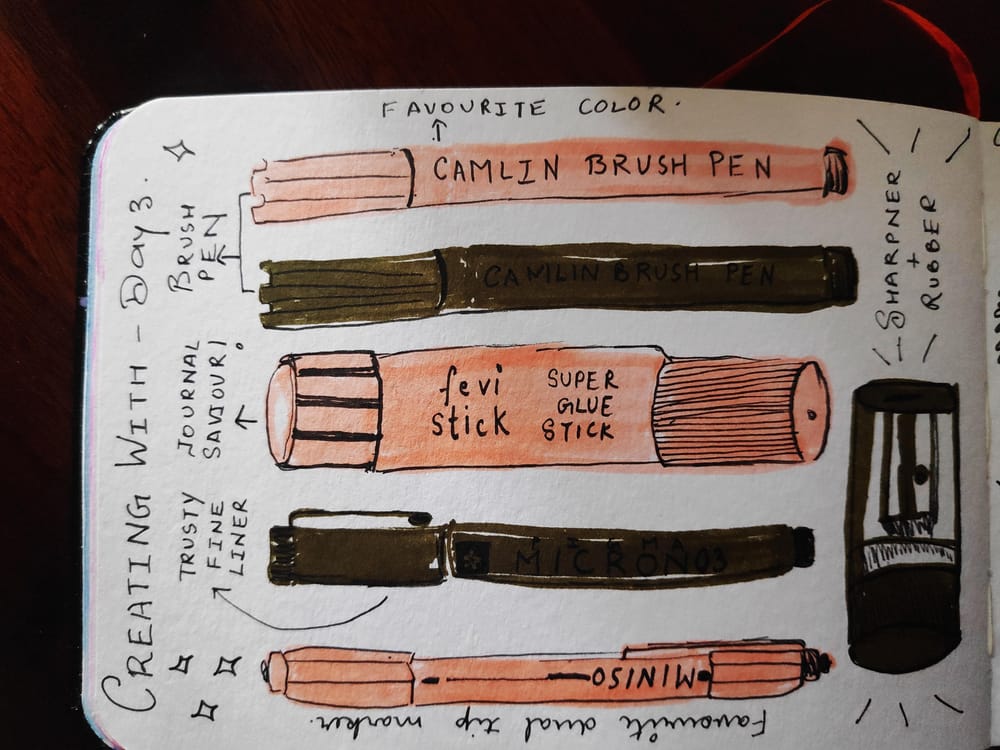 CREATING WITH - Day 3.
FAVOURITE COLOR.
CAMLIN BRUSH PEN
BRUSH
PEN
CAMLIN BRUSH PEN
JOURNAL
SAVIOUR!
fevi
stick
SUPER
GLUE
STICK
TRUSTY
FINE
LINER
MICRON 03
MINISO
Favourite dual tip marker.
SHARPNER
+
RUBBER